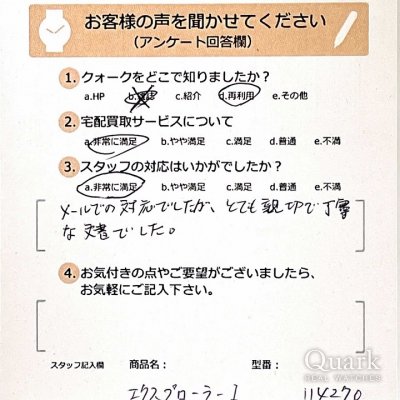 お客様の声を聞かせてください
(アンケート回答欄)
1. クォークをどこで知りましたか?
a.HP b. c.紹介 d.再利用 e.その他
2. 宅配買取サービスについて
a.非常に満足 b.やや満足 c.満足 d.普通 e.不満
3. スタッフの対応はいかがでしたか?
a.非常に満足 b.やや満足 c.満足 d.普通 e.不満
メールでの対応でしたが、とても親切で丁寧
な文書でした。
4. お気付きの点やご要望がございましたら、
お気軽にご記入下さい。
スタッフ記入欄 商品名: 型番:
エクスプローラーI 114270
Quark
REAL WATCHES